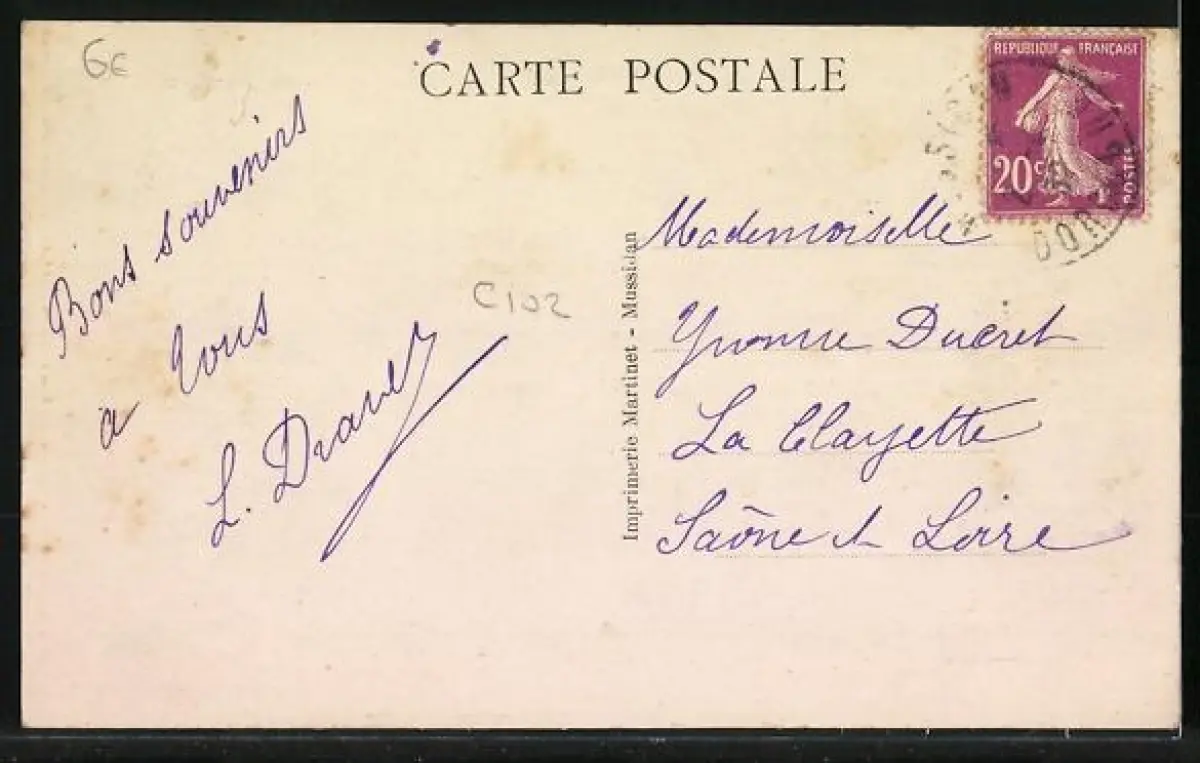 6€
CARTE POSTALE
REPUBLIQUE FRANÇAISE
20c
POSTES
Bons souvenirs
a tous
L.
C102
Imprimerie Martinet - Mussidan
Mademoiselle
Yvonne Ducret
La Clayette
Saône et Loire